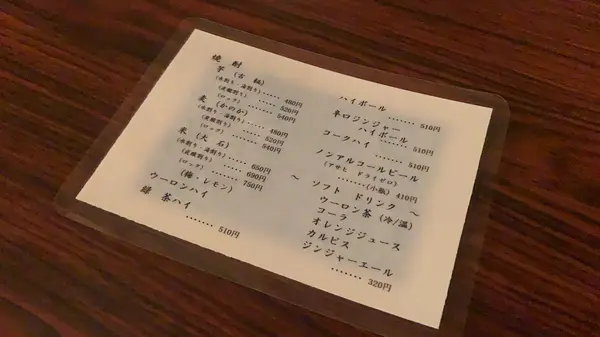 焼酎
芋（古秘）
（水割り・湯割り）‥‥‥480円
（炭酸割り）‥‥‥520円
（ロック）‥‥‥540円
麦（かのか）
（水割り・湯割り）‥‥‥480円
（炭酸割り）‥‥‥520円
（ロック）‥‥‥540円
米（大石）
（水割り・湯割り）‥‥‥650円
（炭酸割り）‥‥‥690円
（ロック）‥‥‥750円
（梅・レモン）
ウーロンハイ
緑茶ハイ
‥‥‥‥510円
ハイボール
‥‥‥‥510円
辛口ジンジャー
ハイボール
‥‥‥‥510円
コークハイ
‥‥‥‥510円
ノンアルコールビール
（アサヒ ドライゼロ）
‥‥‥（小瓶）410円
～ ソフト ドリンク ～
ウーロン茶（冷/温）
コーラ
オレンジジュース
カルピス
ジンジャーエール
‥‥‥‥320円